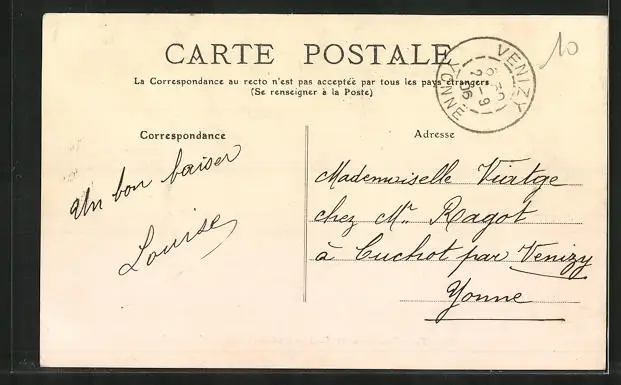 CARTE POSTALE
La Correspondance au recto n'est pas acceptée par tous les pays étrangers
(Se renseigner à la Poste)
VENIZY
YONNE
10
Correspondance
Un bon baiser
Louise
Adresse
Mademoiselle Viatge
chez Mr Ragot
à Cuchot par Venizy
Yonne